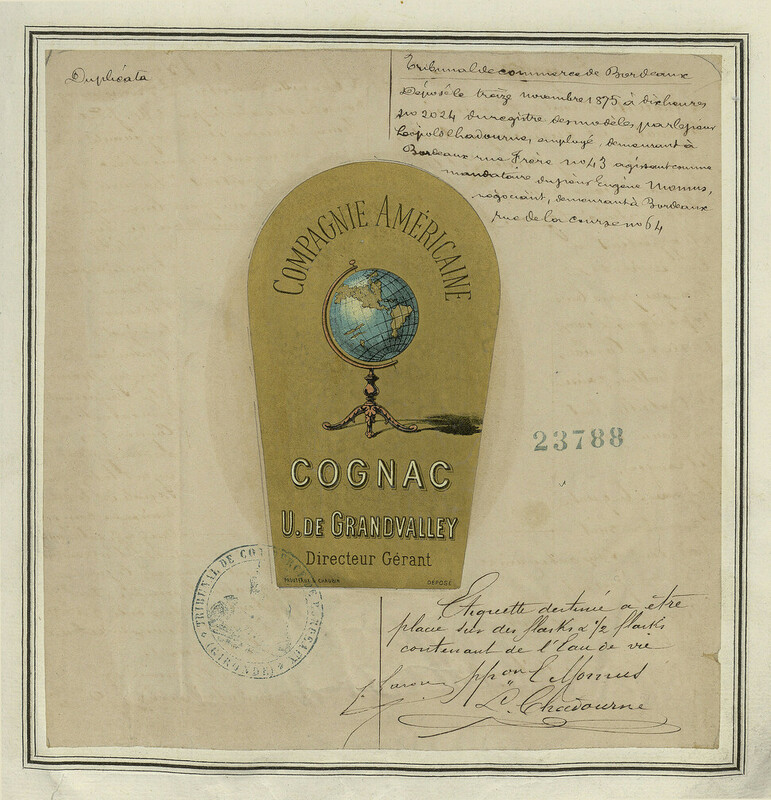 Duplicata
Tribunal de commerce de Bordeaux
Déposé le treize novembre 1875 à dix heures
no 2024 du registre des modèles par le sieur
Léopold Chadourne, employé, demeurant à
Bordeaux rue Frère no 43 agissant comme
mandataire du sieur Eugène Momus,
négociant, demeurant à Bordeaux
rue de la course no 64
COMPAGNIE AMÉRICAINE
23788
COGNAC
U. DE GRANDVALLEY
Directeur Gérant
DÉPOSÉ
TRIBUNAL DE COMMERCE DE BORDEAUX
(GIRONDE)
Etiquette destinée a être
placé sur des flasks & 1/2 flasks
contenant de l'Eau de vie
ppon E Momus
L. Chadourne